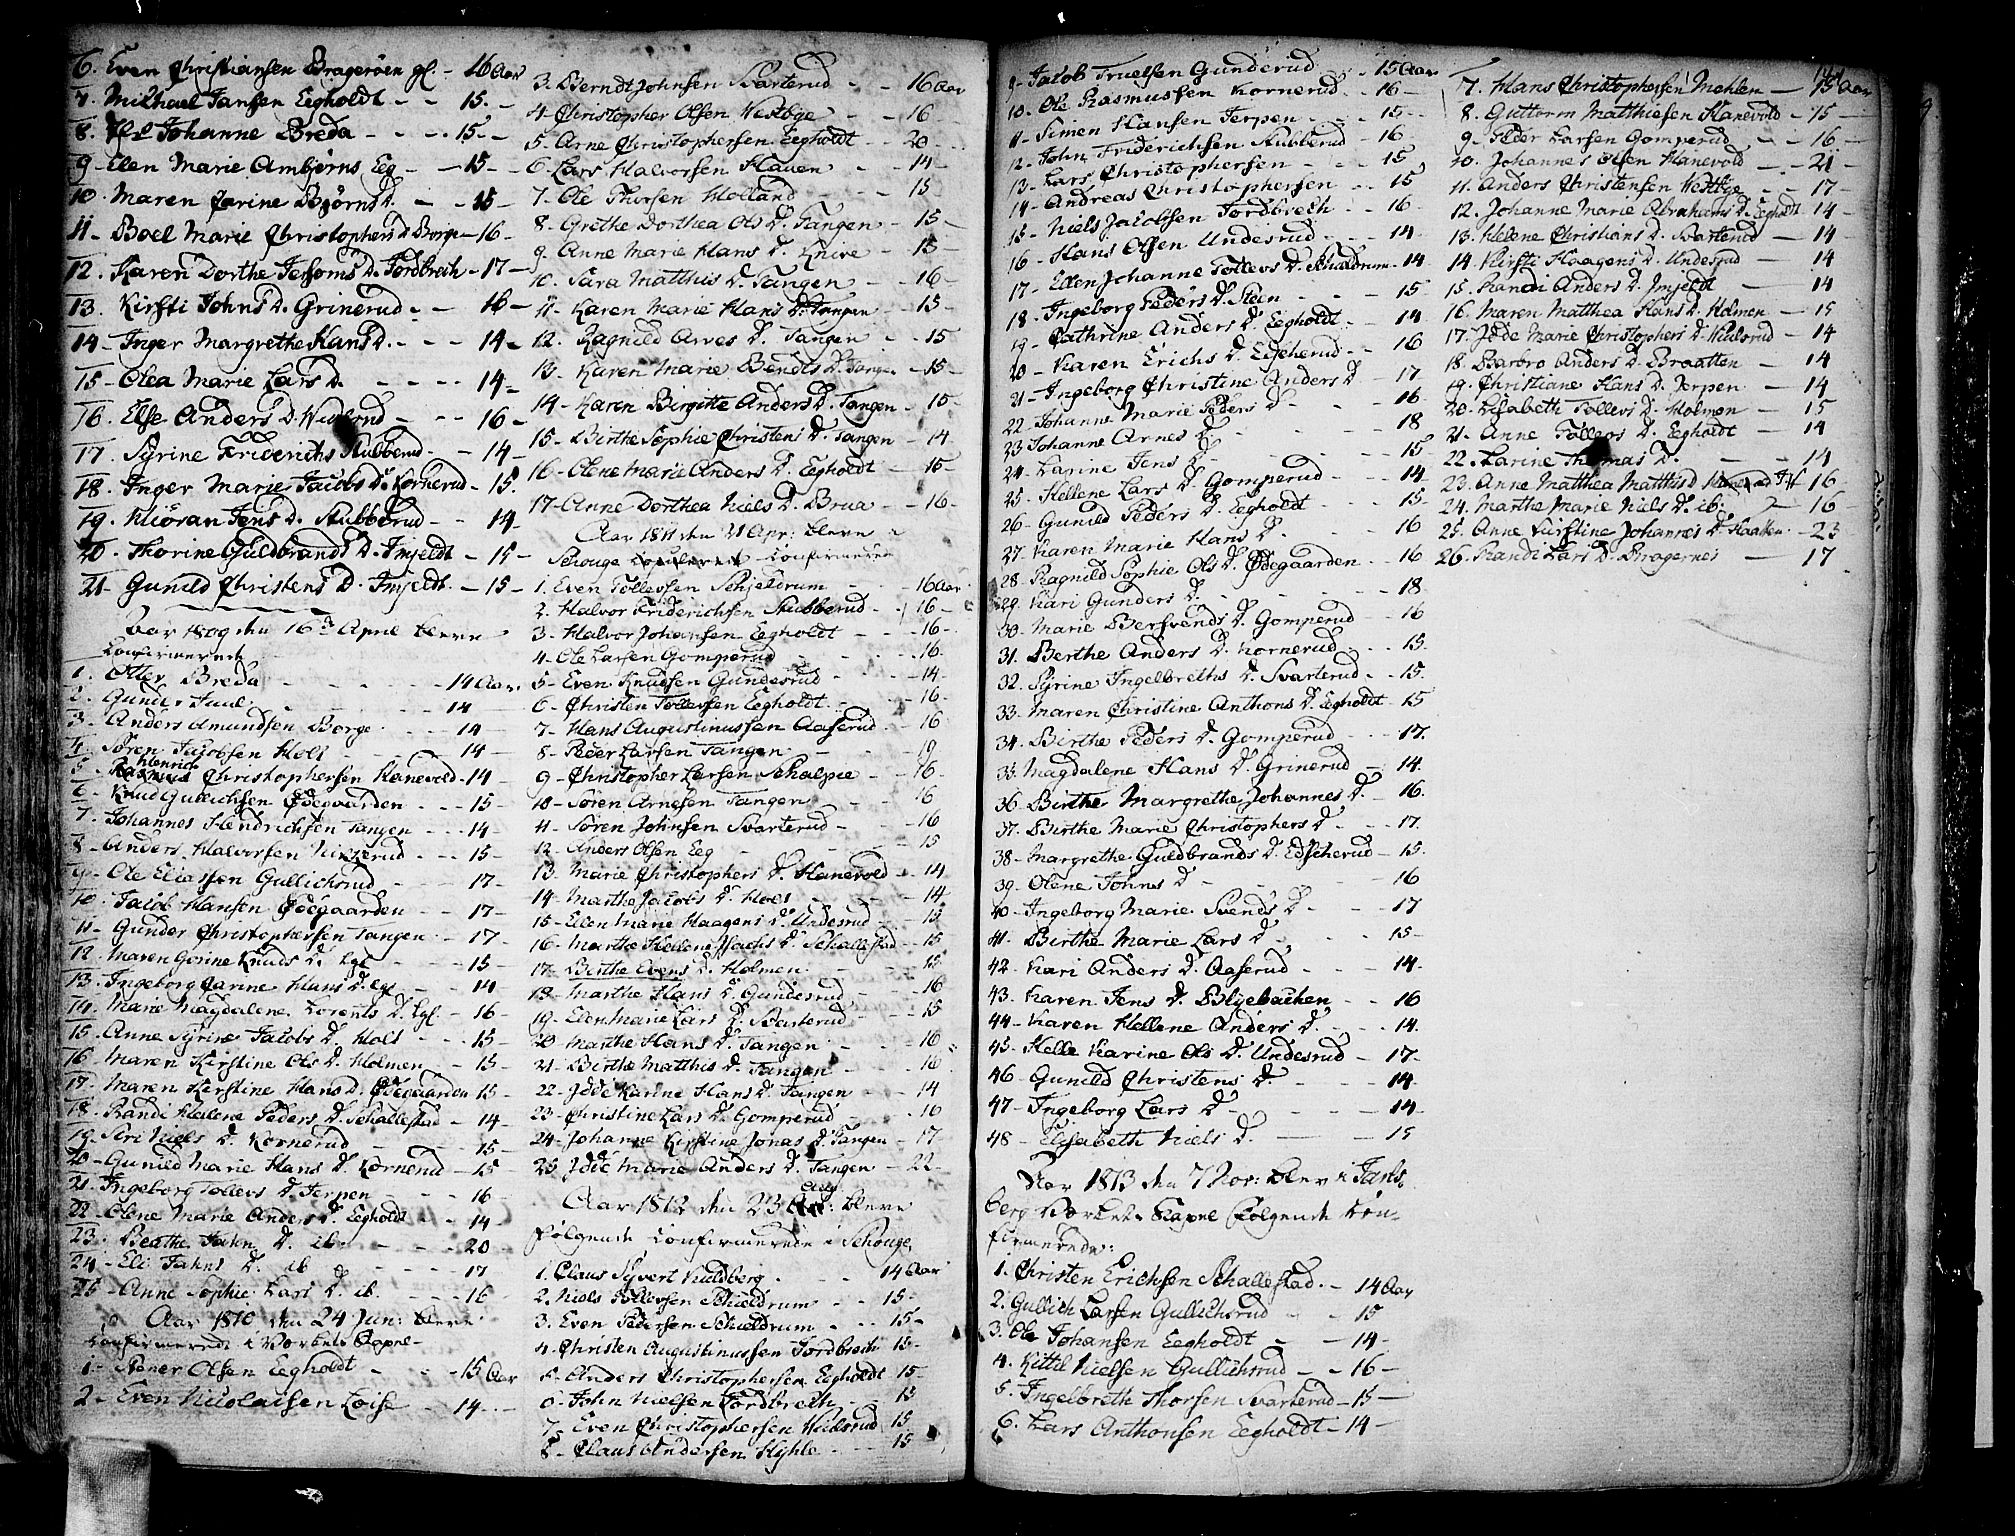 6. Even Christiansen Bragerøen gl. - 16 Aar
7. Michael Jansen Eegholdt - - 15 -
8. Johanne Breda - - - 15 -
9 - Elen Marie Ambjørns Eeg - - 15 -
10. Maren Carine Bjørns D. - - 15 -
11 - Boel Marie Christophers D Borge - 16 -
12. Karen Dorthe Jersoms D. Fordbrech - 17 -
13. Kirsti Johns D. Grinerud - - 16 -
14 - Inger Margrethe Hans D. - - - 14 -
15 - Olea Marie Lars D. - - - - 14 -
16. Else Anders D. Widsrud - - - 16 -
17. Syrine Friderichs Stubberud - - 14 -
18. Inger Marie Jacobs D. Kornerud - 15.
19. Kiöran Jens D. Stubberud - - 14 -
20. Thorine Guldbrands D. Imjeldt - 15 -
21 - Gunild Christens D. Imjeldt - 15 -
Aar 1809 den 16de April bleve
Confirmerede
1. Otter Breda - - - - 14 Aar.
2. Gunder Juul - - - - 14 -
3 - Anders Amundsen Borge - - 14 -
4. Sören Jacobsen Hols - - - 14 -
5 - Henrich Christophersen Hanevold - 14 -
6 - Knud Gullichsen Ødegaarden - - - 15 -
7. Johannes Hendrichsen Tangen - - - 14 -
8 - Anders Halvorsen - - - 15 -
9 - Ole Eliassen Gullichsrud - - - 17 -
10. Jacob Hansen Ødegaarden - - - 17 -
11 - Gunder Christophersen Tangen - - 17 -
12. Maren Gorine Knuds D. Egl - - - 15 -
13. Ingeborg Carine Hans D. Egl - - 14 -
14. Marie Magdalene Lorents D. Egl. - 16 -
15. Anne Syrine Jacobs D. Hols - - - 15 -
16. Maren Kirstine Ols D. Holmen - - 15 -
17. Maren Kirstine Hans D. Ødegaarden 15 -
18. Randi Helene Peders D. Schallestad - 14 -
19. Siri Niels D. Kornerud - - - 15 -
20 - Gunild Marie Hans D. Kornerud - 15
21. Ingeborg Tollevs D. Jerpen - - 16 -
22 - Olene Marie Anders D. Eegholdt - - 14 -
23. Beathe Jahn D. ib - - - - 20
24 - Eli Jahns D. ib - - - - 17
25 - Anne Sophie Lars D. ib. - - - 16
Aar 1810 den 24 Jun: bleve
Confirmerede i Vorbets Capel -
1 - Stener Olsen Eegholdt - - - 15 Aar
2 - Even Nicolaisen Loise - 14 -
3. Berndt Johnsen Svarterud - - 16 Aar
4 - Christopher Olsen Westbye - - 16 -
5 - Arne Christophersen Eegholdt - - 20 -
6 - Lars Halvorsen Hauen - - 14 -
7 - Ole Thorsen Holland - - 15
8 - Grethe Dorthea Ols D. Tangen - - 15 -
9 - Anne Marie Hans D. Knive - - 15
10. Sara Matthis D. Tangen - - 16 -
11 - Karen Marie Hans D. Tangen - - 15 -
12. Ragnild Arves D. Tangen - - 15
13 - Karen Marie Bendts D. Tangen - 15 -
14 - Karen Birgitte Anders D. Tangen - 15 -
15 - Birthe Sophie Christens D. Tangen - 14 -
16 - Olene Marie Anders D. Eegholdt - - 15 -
17 - Anne Dorthea Niels D. Brua - - 16 -
Aar 1811 den 21 Apr: bleve
Schouge Confirmerede
1. Even Tollevsen Schjeldrum - - 16 Aar
2. Halvor Friderichsen Stubberud - - 16 -
3 - Halvor Johansen Eegholdt - - 16 -
4 - Ole Larsen Gomperud - - 16.
5 - Even Knudsen Gundesrud - - 14 -
6 - Christen Tollevsen Eegholdt - - 16 -
7 - Hans Augustinussen Aaserud - - 16
8 - Peder Larsen Tangen - - 19
9 - Christopher Larsen Schalpie - - 16 -
10 - Sören Arnesen Tangen - - 16
11 - Sören Johnsen Svarterud - - 16
12 - Anders Olsen Eeg - - 15
13. Marie Christophers D. Hanevold - - 14
14 - Marthe Jacobs D. Hols - - 14
15 - Ellen Marie Haagens D. Undesrud - 15
16 - Marthe Hellene Isachs D. Schallestad - 15
17 - Birthe Evens D. Holmen - - 15
18 - Marthe Hans D. Gundesrud - - 16
19 - Elen Marie Lars D. Svarterud - - 15
20 - Marthe Hans D. Tangen - - 16
21 - Birthe Matthis D. Tangen - - 16
22 - Idde Karine Hans D. Tangen - - 14
23 - Christine Lars D. Gomperud - - 16
24 - Johanne Kirstine Jonas D. Tangen - 17 -
25 Idde Marie Anders D. Tangen - 22 -
Aar 1812 den 23 Aug: bleve
Følgende Confirmerede i Schouge
1. Claus Syvert Kuldberg - - 14 Aar
2. Niels Tollevsen Schieldrum - - 15 -
3. Even Pedersen Schieldrum - - - 15 -
4. Christen Augustinussen Fordbrech 15 -
5 - Anders Christophersen Eegholdt 15 -
6 - John Nielsen Fordbrech - - 15
7 - Even Christophersen Widsrud 15.
8 - Claus Andersen Hyhle - - - 15
9 - Jacob Truelsen Gunderud - - 15 Aar
10. Ole Rasmussen Kornerud - - 16 -
11 - Simen Hansen Jerpen - - - 15 -
12 - John Friderichsen Stubberud - 16
13 - Lars Christophersen - - - 15
14 - Andreas Christophersen - - 15
15 - Niels Jacobsen Fordbrech - - 16 -
16 - Hans Olsen Undesrud - - - 14
17 - Ellen Johanne Tollevs D. Schieldrum - 14
18 - Ingeborg Peders D. Stein - - 15
19 - Cathrine Anders D. Eegholdt - - 14
20 - Karen Erichs D. Edscherud - - 16
21 - Ingeborg Christine Anders D - - 17
22 - Johanne Marie Peders D - - 16
23 Johanne Arnes D. - - - - 18
24 - Karine Jens D. - - - - 15
25. Hellene Lars D. Gomperud - - 14
26 - Gunild Peders D. Eegholdt - - 15
27 - Karen Marie Hans D. - - - 16
28 - Ragnild Sophie Ols D. Ødegaarden - 16
29. Kari Gunders D. - - - - 18
30. Marie Bersvends D. Gomperud - 16
31. Berthe Anders D. Kornerud - - - 15.
32. Syrine Ingelbreths D. Svarterud - - 15.
33. Maren Christine Anthons D. Eegholdt - 15
34. Birthe Peders D. Gomperud - - - 17.
35. Magdalene Hans D. Grinerud - - 14.
36. Birthe Margrethe Johannes D. - - 16.
37. Birthe Marie Christophers D. - - - 17.
38 - Margrethe Guldbrands D. Edscherud - 15.
39. Olene Johns D - - - - 16
40 - Ingeborg Marie Svends D - - - 17
41. Birthe Marie Lars D - - - 15 -
42 - Kari Anders D. Aaserud - - - 14.
43. Karen Jens D. Blyebachen - - 16
44 - Karen Hellene Anders D. - - - 14.
45. Helle Karine Ols D. Undesrud - - 17 -
46 - Gunild Christens D. - - - 14.
47 - Ingeborg Lars D - - - - 14 -
48 - Elisabeth Niels D. - - 15
Aar 1813 den 7 Nov: blev i Jarls-
berg Vorbets Capel Følgende Con-
firmerede:
1. Christen Erichsen Schallestad - 14 Aar
2. Gullich Larsen Gullichsrud - 15
3. Ole Johansen Eegholdt - - 14 -
4. Kittil Nielsen Gullichsrud - - 16 -
5. Ingelbreth Thorsen Svarterud - 15 -
6. Lars Anthonsen Eegholdt - 14 -
7. Hans Christophersen Mehlen - 15 Aar
8. Guttorm Matthiesen Hanevold - 15 -
9 - Peder Larsen Gomperud - - 16 -
10. Johannes Olsen Hanevold - 21 -
11. Anders Christensen Westbye - - 17 -
12. Johanne Marie Abrahams D. Eegholdt 14 -
13. Helene Christians D. Svarterud - 14
14. Kirsti Haagens D. Undesrud - 14
15. Randi Anders D. Imjeldt - 14
16. Maren Matthea Hans D. Holmen - 15
17. Idde Marie Christophers D. Widsrud - 14
18. Barbro Anders D. Braatten - 14
19. Christiane Hans D. Jerpen - 14
20. Lisabeth Tollevs D. Holmen - 15
21. Anne Tollevs D. Eegholdt - 14
22. Karine Thomas D. - - 14
23. Anne Matthea Matthis D 16
24. Marthe Marie Niels D. ib. - 16
25. Anne Kirstine Johannes D. Haatten - 23
26. Randi Lars D. Bragernes - 17